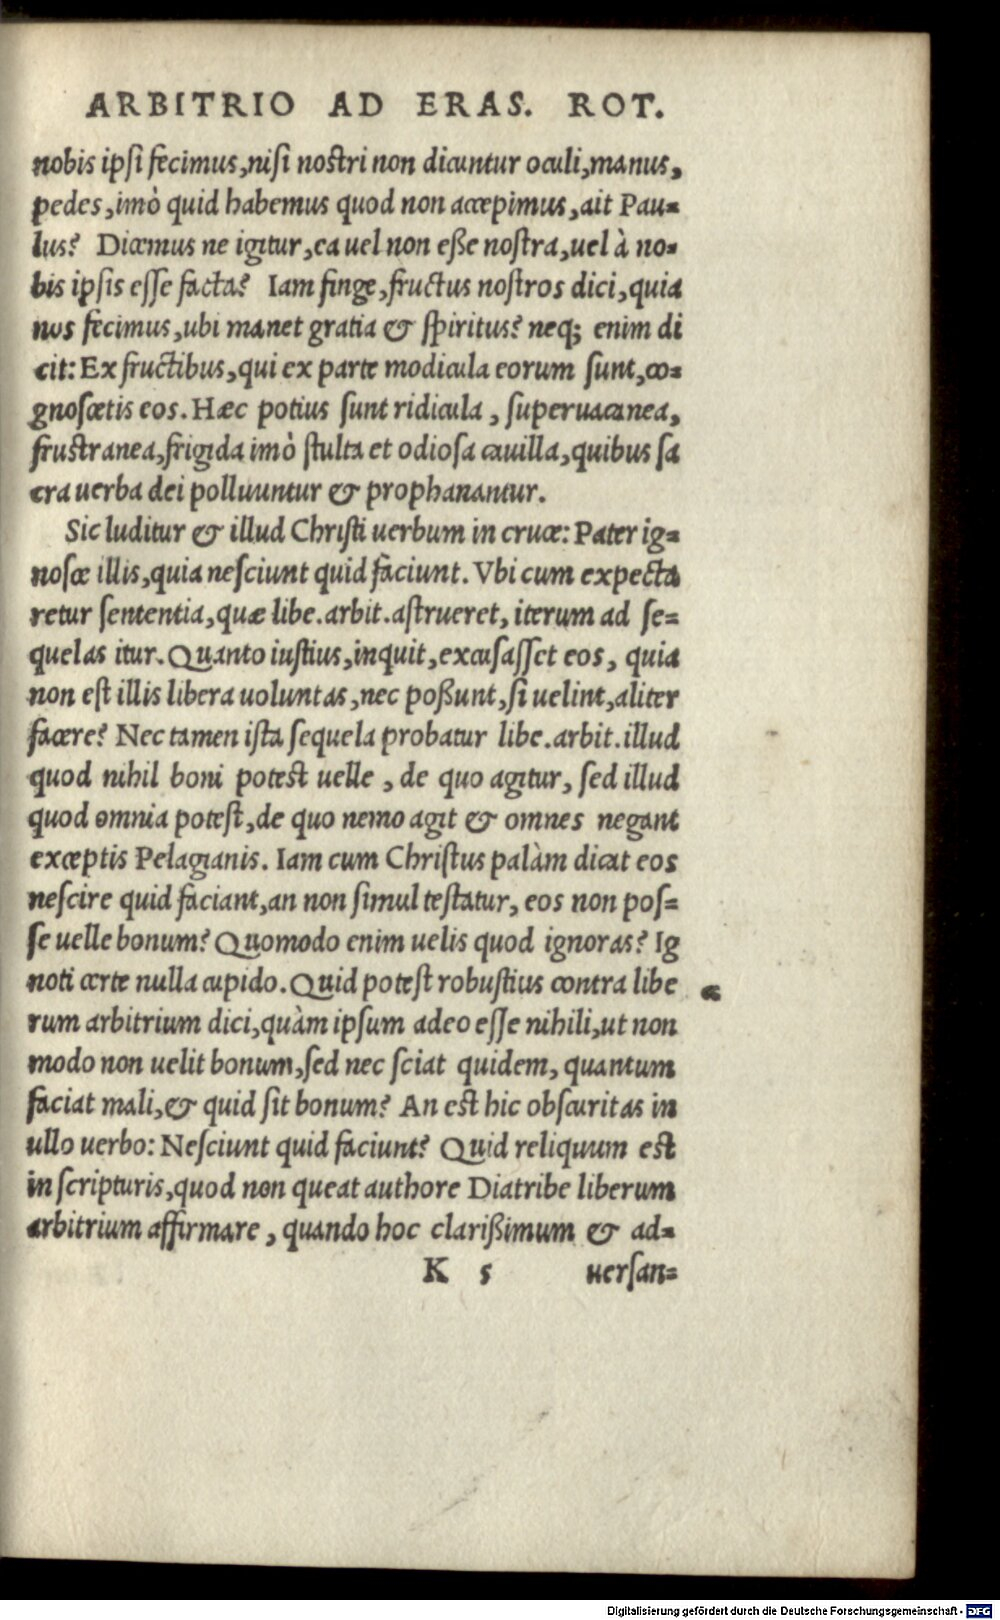 ARBITRIO AD ERAS. ROT.
nobis ipsi fecimus, nisi nostri non dicuntur oculi, manus,
pedes, imò quid habemus quod non accepimus, ait Pau-
lus? Dicemus ne igitur, ea uel non eße nostra, uel à no-
bis ipsis esse facta? Iam finge, fructus nostros dici, quia
nos fecimus, ubi manet gratia & spiritus? neq; enim di
cit: Ex fructibus, qui ex parte modicula eorum sunt, co-
gnoscetis eos. Hæc potius sunt ridicula, superuacanea,
frustranea, frigida imò stulta et odiosa cauilla, quibus sa
cra uerba dei polluuntur & prophanantur.
Sic luditur & illud Christi uerbum in cruce: Pater ig-
nosce illis, quia nesciunt quid faciunt. Vbi cum expecta
retur sententia, quæ libe. arbit. astrueret, iterum ad se-
quelas itur. Quanto iustius, inquit, excusasset eos, quia
non est illis libera uoluntas, nec poßunt, si uelint, aliter
facere? Nec tamen ista sequela probatur libe. arbit. illud
quod nihil boni potest uelle, de quo agitur, sed illud
quod omnia potest, de quo nemo agit & omnes negant
exceptis Pelagianis. Iam cum Christus palàm dicat eos
nescire quid faciant, an non simul testatur, eos non pos-
se uelle bonum? Quomodo enim uelis quod ignoras? Ig
noti certe nulla cupido. Quid potest robustius contra libe
rum arbitrium dici, quàm ipsum adeo esse nihili, ut non
modo non uelit bonum, sed nec sciat quidem, quantum
faciat mali, & quid sit bonum? An est hic obscuritas in
ullo uerbo: Nesciunt quid faciunt? Quid reliquum est
in scripturis, quod non queat authore Diatribe liberum
arbitrium affirmare, quando hoc clarißimum & ad-
K 5 uersan-
Digitalisierung gefördert durch die Deutsche Forschungsgemeinschaft - DFG